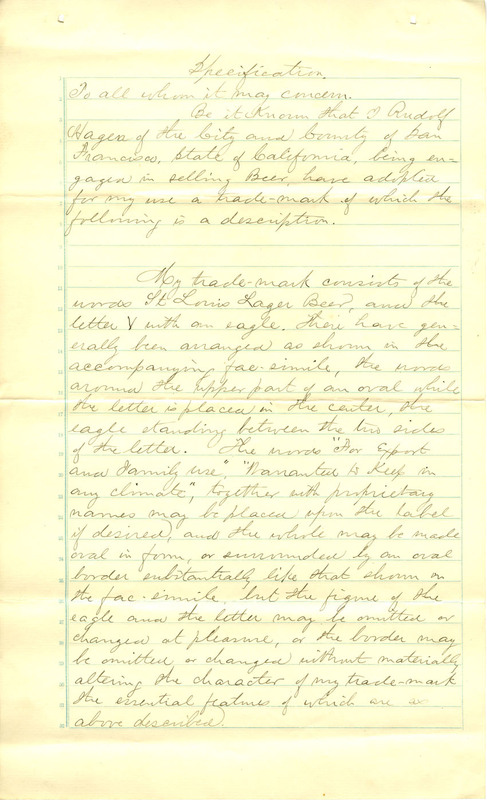 Specification.
To all whom it may concern.
Be it Known that I Rudolf
Hagen of the City and County of San
Francisco, State of California, being en-
gaged in selling Beer, have adopted
for my use a trade-mark of which the
following is a description.
My trade-mark consists of the
words St Louis Lager Beer, and the
letter V with an eagle. These have gen-
erally been arranged as shown in the
accompanying fac-simile, the words
around the upper part of an oval while
the letter is placed in the center, the
eagle standing between the two sides
of the letter. The words "For Export
and Family use", "Warranted to Keep in
any climate", together with proprietary
names may be placed upon the label
if desired, and the whole may be made
oval in form, or surrounded by an oval
border substantially like that shown in
the fac-simile, but the figure of the
eagle and the letter may be omitted or
changed at pleasure, or the border may
be omitted or changed without materially
altering the character of my trade-mark
the essential features of which are as
above described.